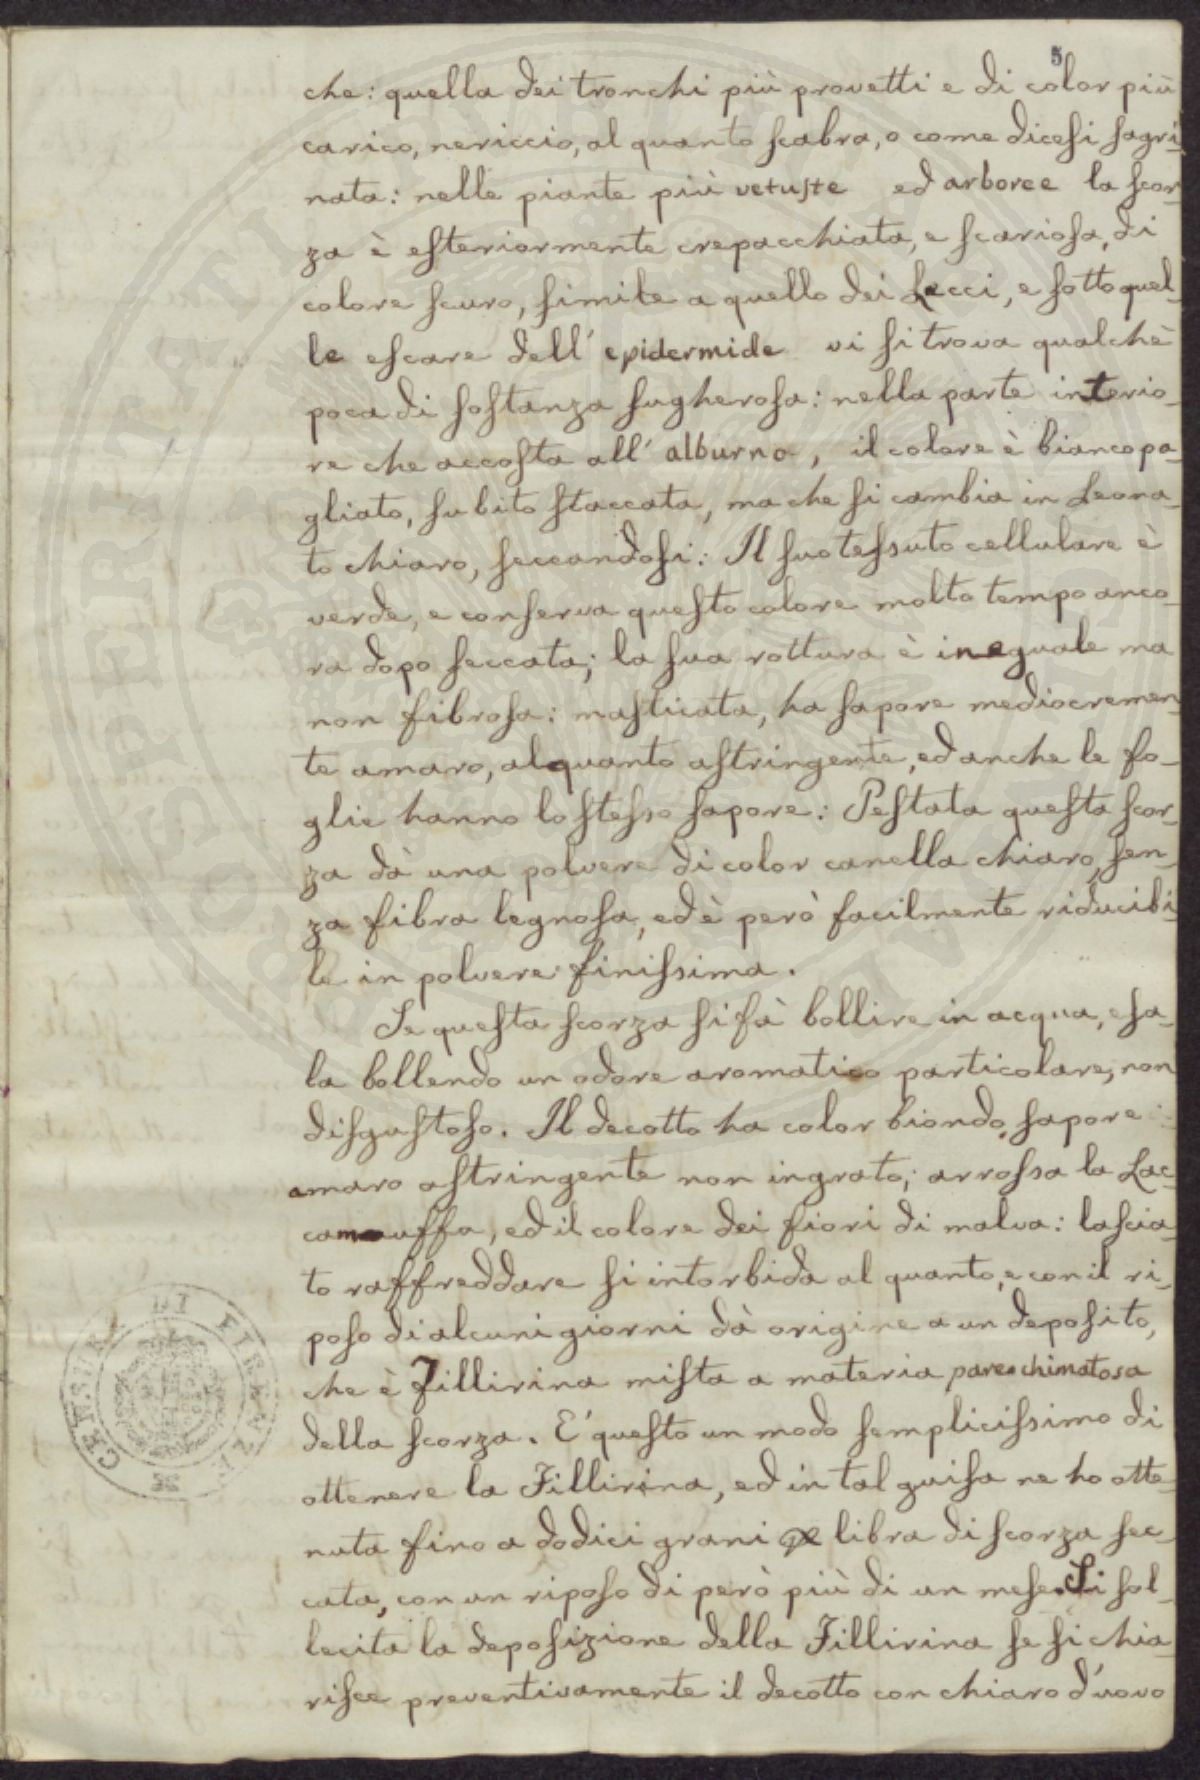 5
che: quella dei tronchi più provetti e di color più
carico, nericcio, al quanto scabra, o come dicesi sagri-
nata: nelle piante più vetuste ed arboree la scor-
za è esteriormente crepacchiata, e scariosa, di
colore scuro, simile a quello dei Lecci, e sotto quel-
le escare dell' epidermide vi si trova qualchè
poca di sostanza sugherosa: nella parte interio-
re che accosta all' alburno, il colore è bianco pa-
gliato, subito staccata, ma che si cambia in Leona-
to chiaro, seccandosi: Il suo tessuto cellulare è
verde, e conserva questo colore molto tempo anco-
ra dopo seccata; la sua rottura è ineguale ma
non fibrosa: masticata, ha sapore mediocremen-
te amaro, alquanto astringente, ed anche le fo-
glie hanno lo stesso sapore: Pestata questa scor-
za dà una polvere di color canella chiaro, sen-
za fibra legnosa, ed è però facilmente riducibi-
le in polvere finissima.
Se questa scorza si fà bollire in acqua, esa-
la bollendo un odore aromatico particolare, non
disgustoso. Il decotto ha color biondo, sapore
amaro astringente non ingrato; arrossa la Lac-
camuffa, ed il colore dei fiori di malva: lascia-
to raffreddare si intorbida al quanto, e con il ri-
poso di alcuni giorni dà origine a un deposito,
che è Fillirina mista a materia parenchimatosa
della scorza. E' questo un modo semplicissimo di
ottenere la Fillirina, ed in tal guisa ne ho otte-
nuta fino a dodici grani per libra di scorza sec-
cata, con un riposo di però più di un mese. Si sol-
lecita la deposizione della Fillirina se si chia-
risce preventivamente il decotto con chiaro d'uovo
PROSPERITATI
CENSURA DI FIRENZE